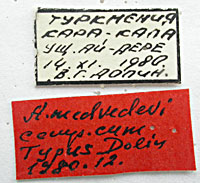 ТУРКМЕНИЯ
КАРА-КАЛА
УЩ. АЙ-ДЕРЕ
14. XI. 1980.
В.Г. ДОЛИН.
A. medvedevi
Typus Dolin
1980. 12.